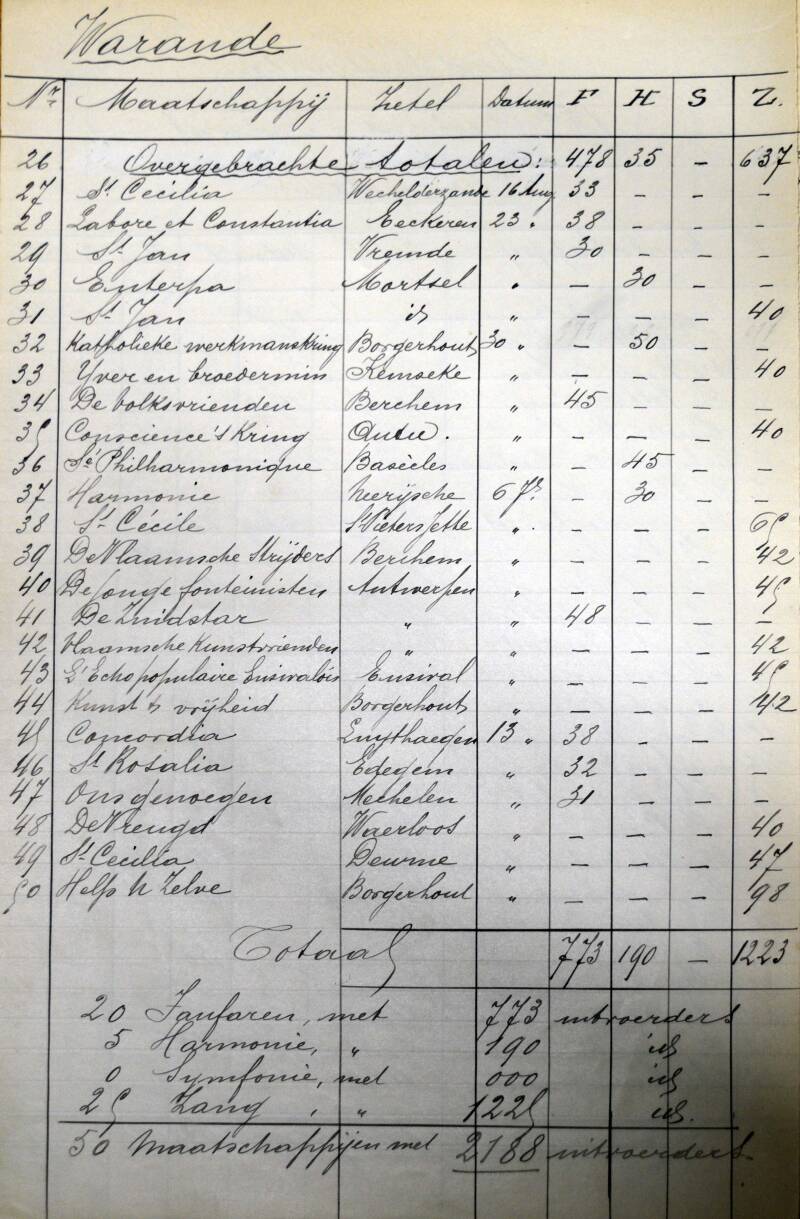 Warande
Nr. Maatschappij Zetel Datum F H S Z.
26 Overgebrachte totalen: 478 35 — 637
27 St. Cecilia Wechelderzande 16 Aug 33 — — —
28 Labore et Constantia Eeckeren 23 " 38 — — —
29 St. Jan Vremde " 30 — — —
30 Enterpa Mortsel " — 30 — —
31 St. Jan id " — — — 40
32 Katholieke werkmanskring Borgerhout 30 " — 50 — —
33 Yver en broedermin Kemseke " — — — 40
34 De volksvrienden Berchem " 45 — — —
35 Conscience's Kring Antw. " — — — 40
36 Sté Philharmonique Basècles " — 45 — —
37 Harmonie Neerijsche 6 7br — 30 — —
38 St. Cécile St Pieters Jette " — — — 65
39 De Vlaamsche Strijders Berchem " — — — 42
40 De Jonge fonteinisten Antwerpen " — — — 45
41 De Zuidstar " " 48 — — —
42 Vlaamsche Kunstvrienden " " — — — 42
43 L'Echo populaire Ensivalois Ensival " — — — 45
44 Kunst & vrijheid Borgerhout " — — — 42
45 Concordia Luythaegen 13 " 38 — — —
46 St. Rosalia Edegem " 32 — — —
47 Ons genoegen Mechelen " 31 — — —
48 De Vreugd Waerloos " — — — 40
49 St. Cecilia Deurne " — — — 47
50 Help U Zelve Borgerhout " — — — 98
Totaal 773 190 — 1223
20 Fanfaren, met 773 uitvoerders
5 Harmonie, " 190 id
0 Symfonie, met 000 id
25 Zang, " 1225 id.
50 Maatschappijen met 2188 uitvoerders.